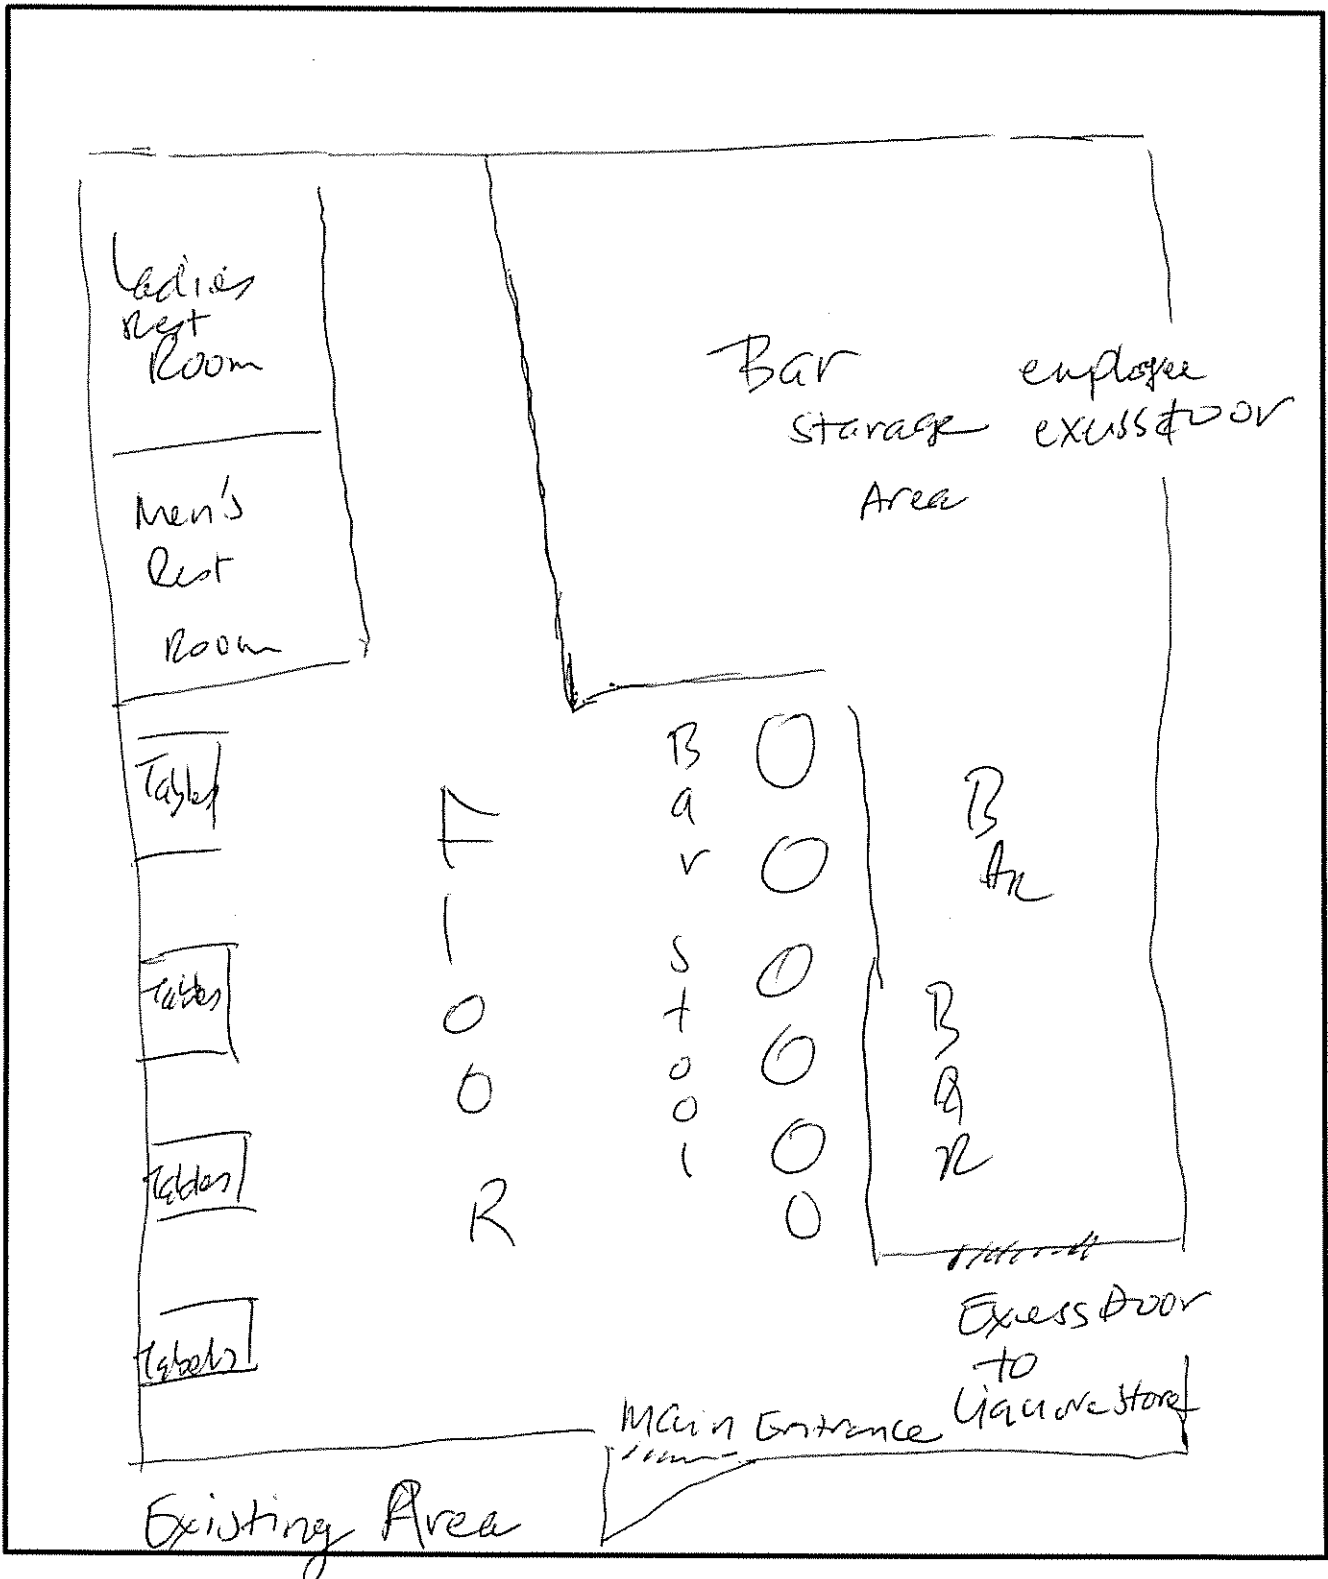 Ladies
Rest
Room
Men's
Rest
Room
Bar
starage
Area
employee
exuss door
Tables
Tables
Tables
Tabels
FlOOR
Bar stool
BAR
BAR
Exess Door
to
Liquore Store
Main Entrance
Existing Area